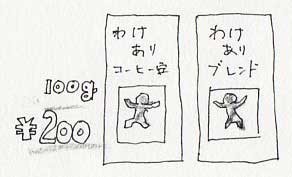 100g
¥200
わけ
あり
コーヒー豆
わけ
あり
ブレンド